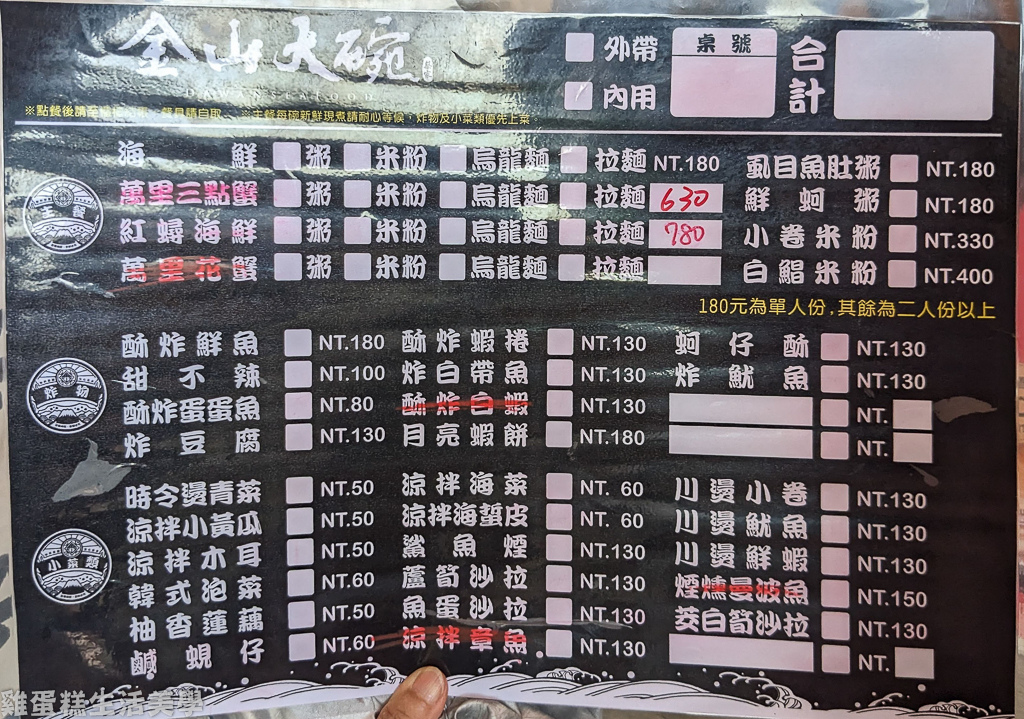 金山大碗
外帶
內用
桌號
合計
※點餐後請至櫃檯 自取 ※主餐每碗新鮮現煮請耐心等候，炸物及小菜類優先上菜。
主餐
海鮮 粥 米粉 烏龍麵 拉麵 NT.180
萬里三點蟹 粥 米粉 烏龍麵 拉麵 630
紅蟳海鮮 粥 米粉 烏龍麵 拉麵 780
萬里花蟹 粥 米粉 烏龍麵 拉麵
虱目魚肚粥 NT.180
鮮蚵粥 NT.180
小卷米粉 NT.330
白鯧米粉 NT.400
180元為單人份,其餘為二人份以上
炸物
酥炸鮮魚 NT.180
甜不辣 NT.100
酥炸蛋蛋魚 NT.80
炸豆腐 NT.130
酥炸蝦捲 NT.130
炸白帶魚 NT.130
酥炸白蝦 NT.130
月亮蝦餅 NT.180
蚵仔酥 NT.130
炸魷魚 NT.130
NT.
NT.
小菜類
時令燙青菜 NT.50
涼拌小黃瓜 NT.50
涼拌木耳 NT.50
韓式泡菜 NT.60
柚香蓮藕 NT.50
鹹蜆仔 NT.60
涼拌海菜 NT. 60
涼拌海蜇皮 NT. 60
鯊魚煙 NT.130
蘆筍沙拉 NT.130
魚蛋沙拉 NT.130
涼拌章魚 NT.130
川燙小卷 NT.130
川燙魷魚 NT.130
川燙鮮蝦 NT.130
煙燻曼波魚 NT.150
茭白筍沙拉 NT.130
NT.
雞蛋糕生活美學